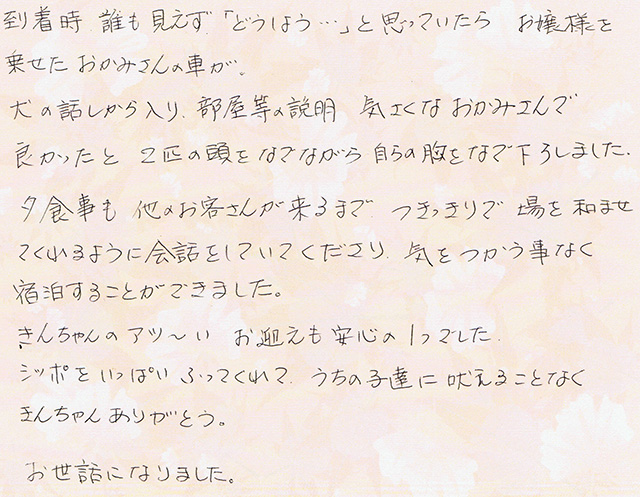 到着時 誰も見えず「どうしよう…」と思っていたら お嬢様を
乗せた おかみさんの車が。
犬の話しから入り、部屋等の説明 気さくな おかみさんで
良かったと 2匹の頭をなでながら 自らの胸をなで下ろしました.
夕食事も 他のお客さんが来るまで つきっきりで 場を 和ませ
てくれるように会話をしていてくださり、気をつかう事なく
宿泊することができました。
きんちゃんのアツ〜い お迎えも 安心の1つでした.
シッポをいっぱい ふってくれて、うちの子達に吠えることなく
きんちゃんありがとう。
お世話になりました。